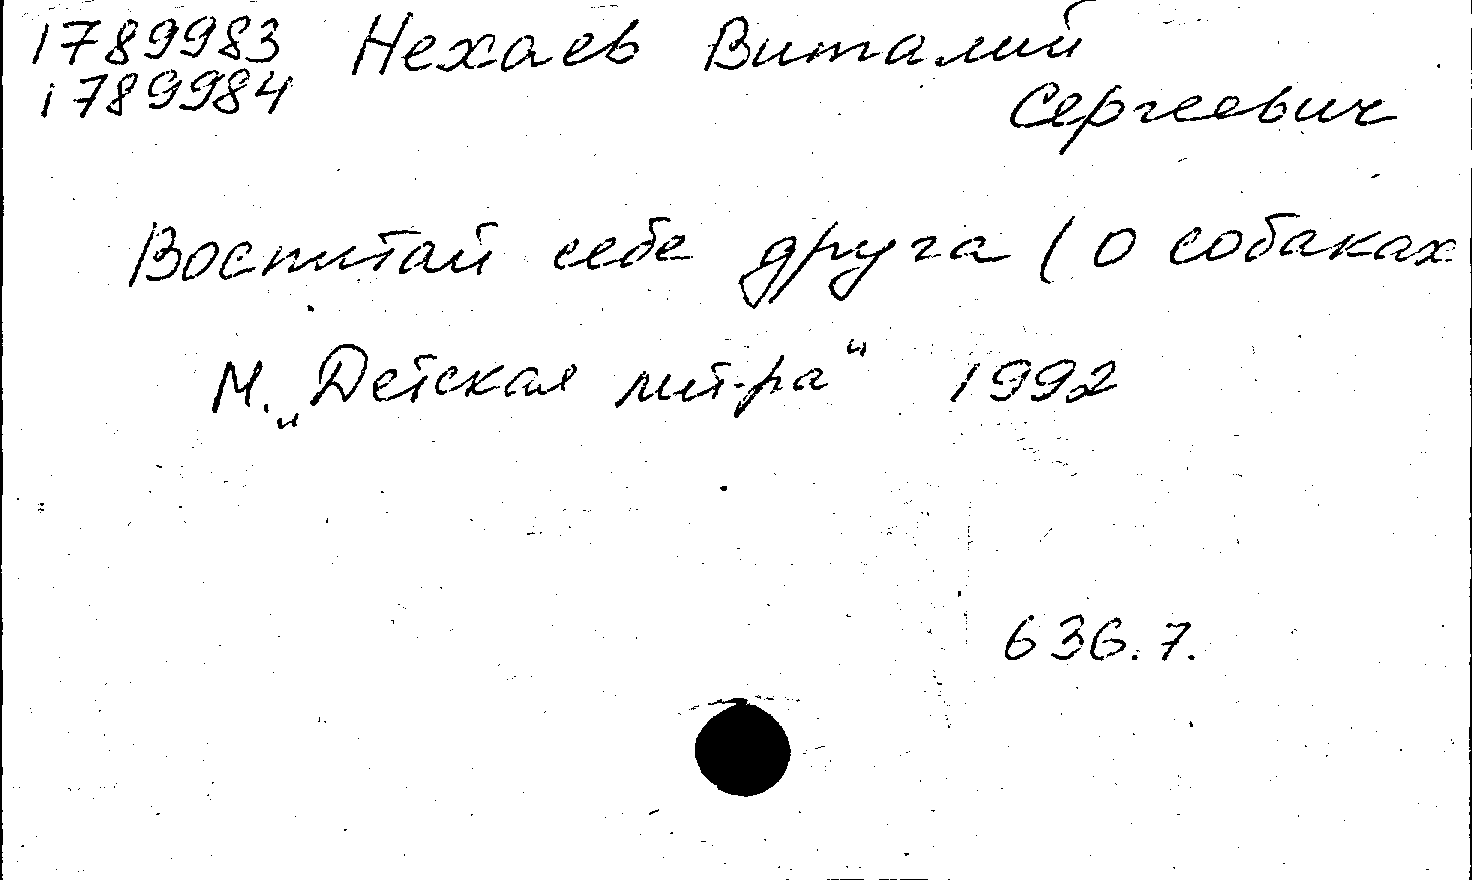 1789983 Нехаев Виталий
1789984 Сергеевич
Воспитай себе друга (о собаках
М. „Детская лит-ра“ 1992
636.7.